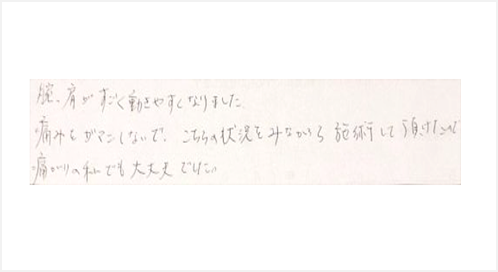 腕、肩がすごく動きやすくなりました
痛みをガマンしないで、こちらの状況をみながら施術して頂けたので
痛がりの私でも大丈夫でした。